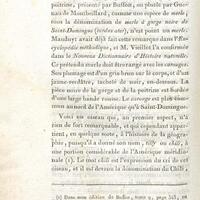 poitrine, présenté par Buffon, ou plutôt par Gué-
neau de Montbeillard, comme une espèce de merle,
sous la dénomination de merle à gorge noire de
Saint-Domingue (turdus ater), n'est point un merle.
Mauduyt avait déjà fait cette remarque dans l'En-
cyclopédie méthodique, et M. Vieillot l'a confirmée
dans le Nouveau Dictionnaire d'Histoire naturelle.
Ce prétendu merle doit être rangé avec les carouges.
Son plumage est d'un gris brun sur le corps, et d'un
jaune rougeâtre, tacheté de noir, en dessous. La
pièce noire de la gorge et de la poitrine est bordée
d'une large bande rousse. Le carouge est plus com-
mun au sud de l'Amérique qu'à Saint-Domingue.
Voici un oiseau que, un premier aspect, n'a
rien de fort remarquable, et qui cependant appar-
tient, en quelque sorte, à l'histoire de la géogra-
phie, puisqu'il a donné son nom, tilly ou chili, à
une portion considérable de l'Amérique méridio-
nale (1). Le mot chili est l'expression du cri de cet
oiseau, et est devenu la dénomination du Chili,
(1) Dans mon édition de Buffon, tome 9, page 343, en